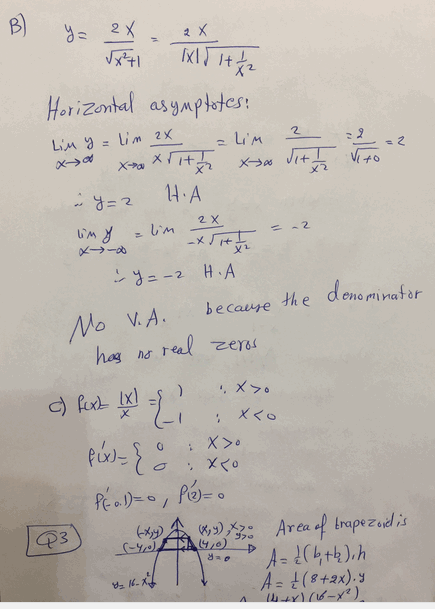 B) y = 2x / √x²+1 = 2x / |x|√1+1/x²
Horizontal asymptotes:
Lim y x→∞ = Lim x→∞ 2x / x√1+1/x² = Lim x→∞ 2 / √1+1/x² = 2/√1+0 = 2
∴ y=2 H.A
Lim y x→-∞ = lim 2x / -x√1+1/x² = -2
∴ y=-2 H.A
No V.A. because the denominator
has no real zeros
c) f(x) = |x|/x = { 1 ; x>0
-1 ; x<0
f'(x) = { 0 ; x>0
0 ; x<0
f'(-0.1)=0 , f'(2)=0
Q3
(-x,y) (x,y), x>0 y>0
(-4,0) (4,0)
y=0
y=16-x²
Area of trapezoid is
A = ½(b₁+b₂).h
A = ½(8+2x).y
(4+x)(16-x²)